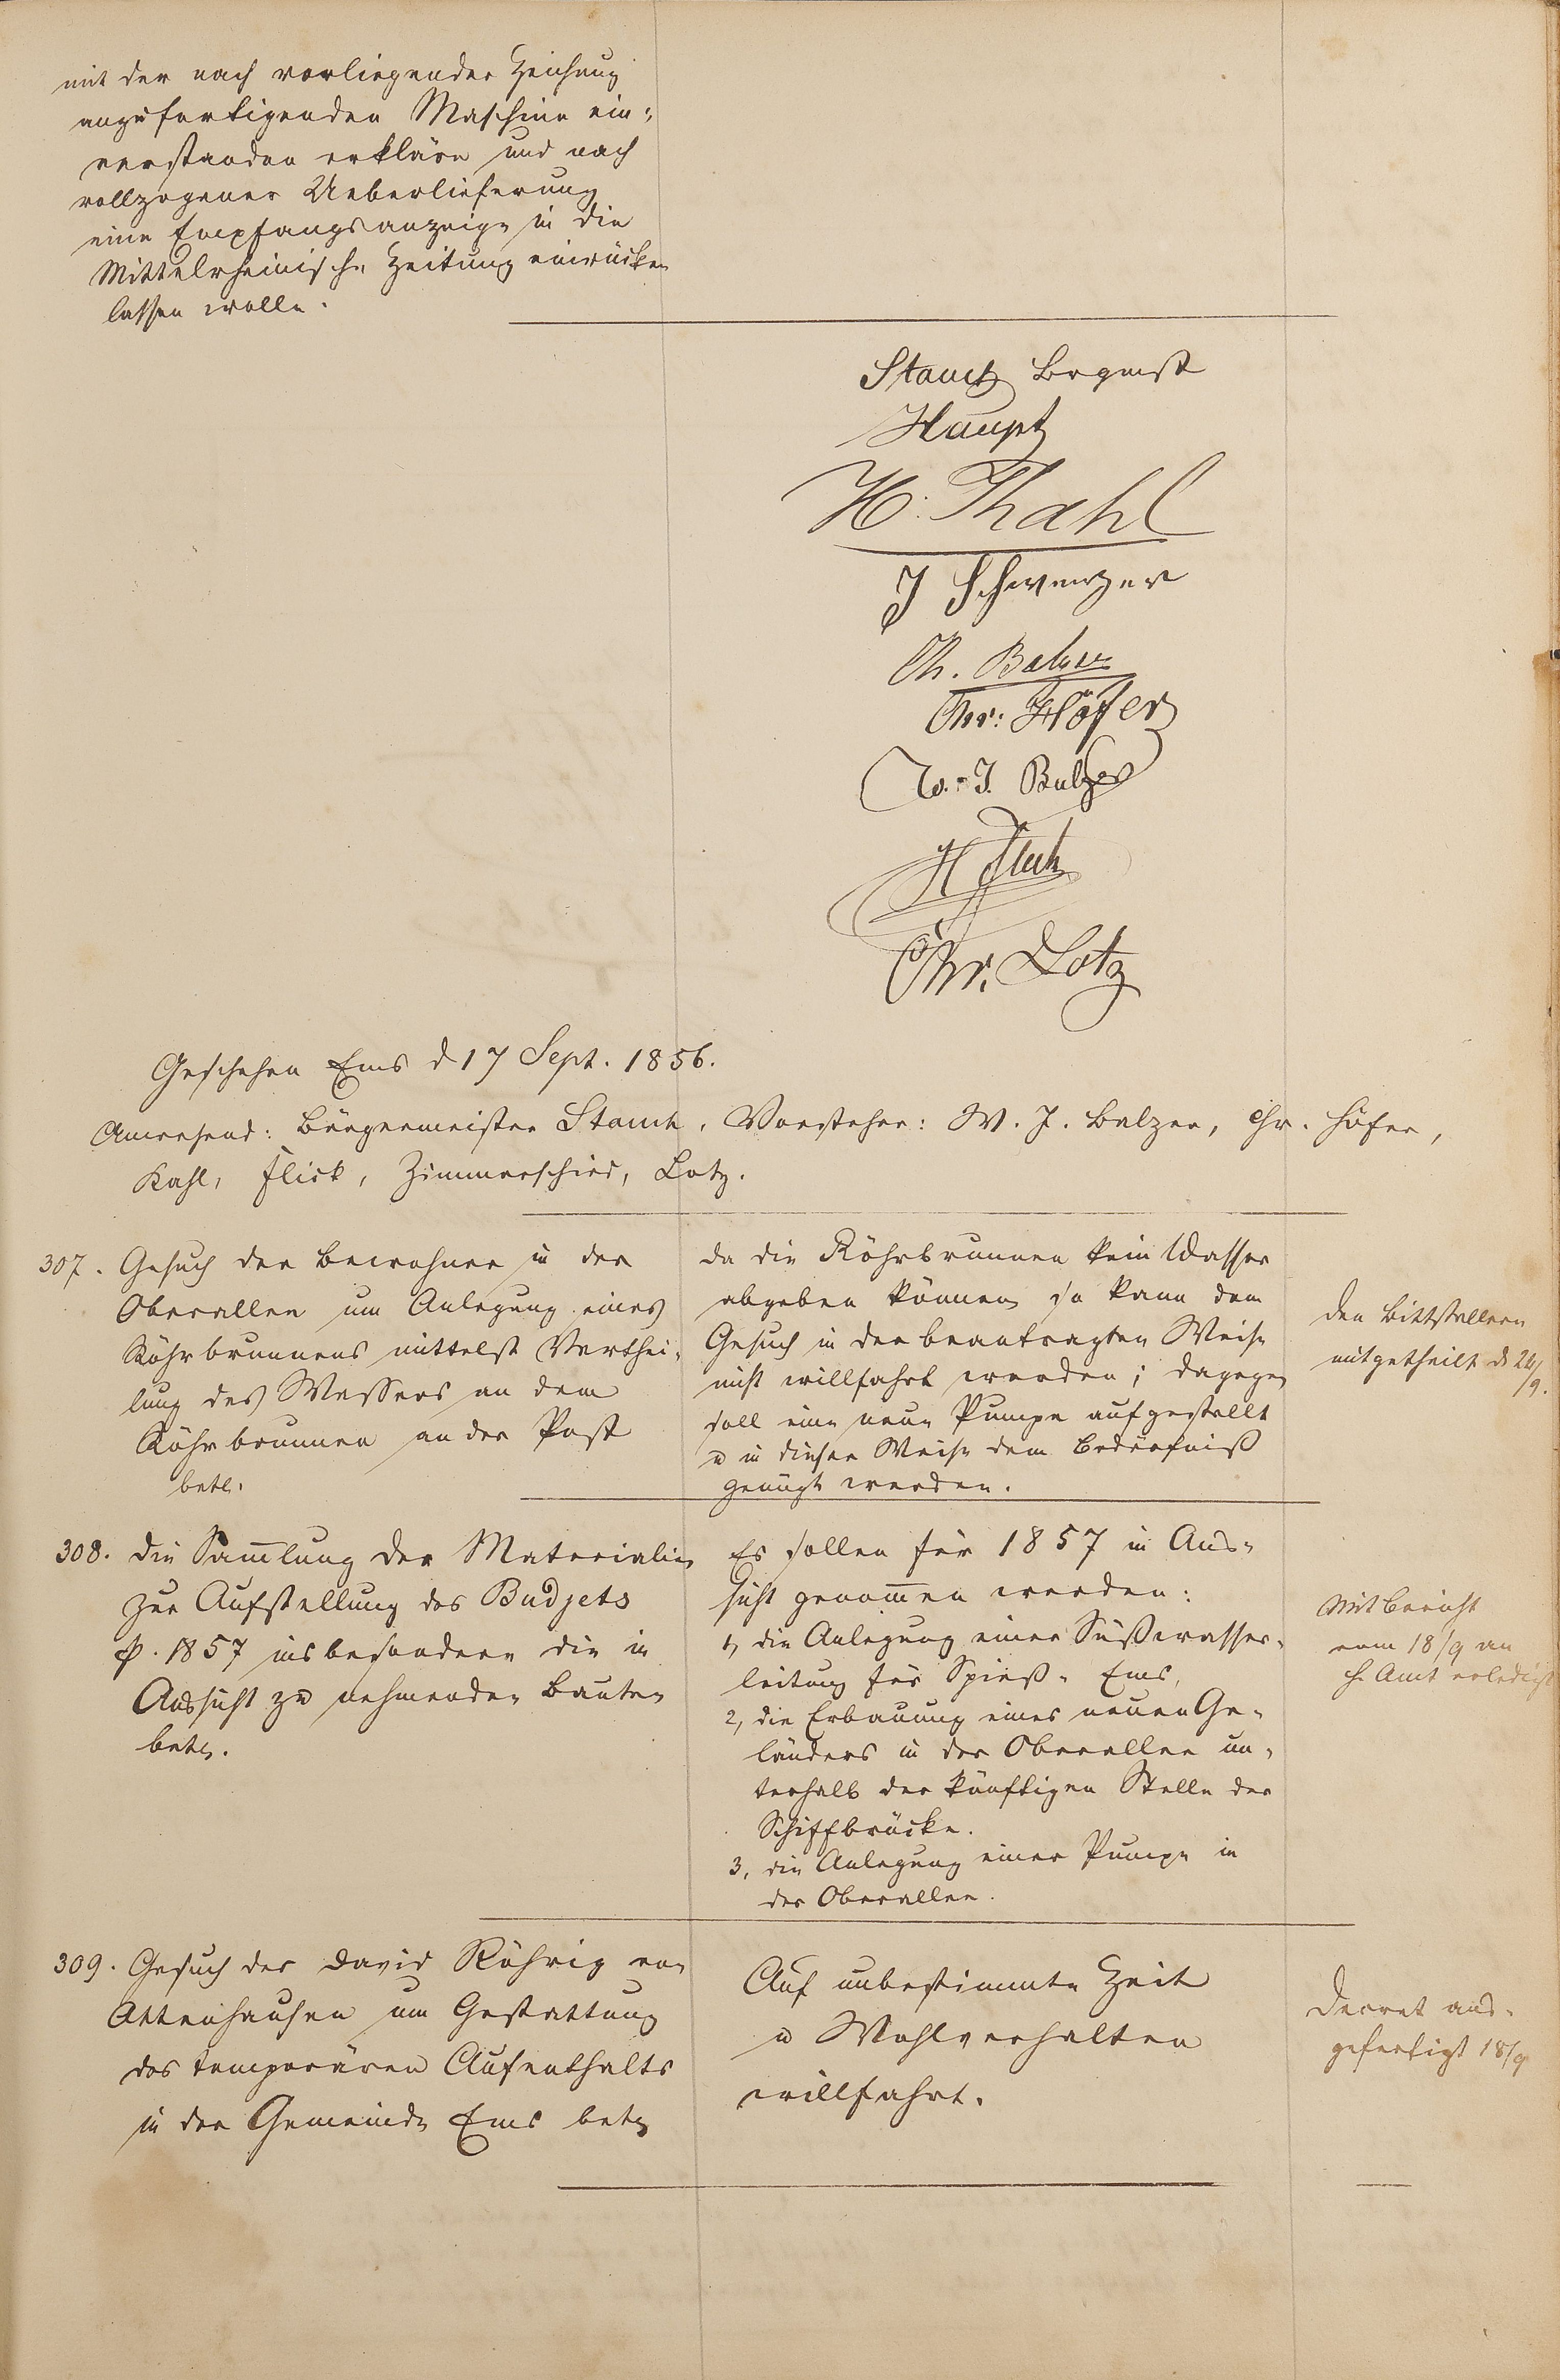 mit der nach vorliegender Zeichnung
anzufertigenden Maschine ein-
verstanden erkläre und nach
vollzogener Ueberlieferung
eine Empfangsanzeige in die
Mittelrheinische Zeitung einrücken
lassen wolle.
Stauch Brgmst
Haupt
J Schwenzer
Ch. Balzer
Chr: Höfer
W. J. Balzer
H Flick
Chr. Lotz
Geschehen Ems d 17 Sept. 1856.
Anwesend: Bürgermeister Stauch, Vorsteher: W. J. Balzer, Chr. Höfer,
Kahl, Flick, Zimmerschied, Lotz.
307. Gesuch der Bewohner in der
Oberallee um Anlegung eines
Röhrbrunnens mittelst Verthei-
lung des Wassers an dem
Röhrbrunnen an der Post
betr.
da die Röhrbrunnen kein Wasser
abgeben können, so kann dem
Gesuch in der beantragten Weise
nicht willfahrt werden; dagegen
soll eine neue Pumpe aufgestellt
u in dieser Weise dem Bedürfniß
genügt werden.
den Bittstellern
mitgetheilt d 24/9.
308. die Sam̄lung der Materialien
zur Aufstellung des Budjets
p. 1857 insbesondere die in
Aussicht zu nehmenden Bauten
betr.
Es sollen für 1857 in Aus-
sicht genom̄en werden:
1, die Anlegung einer Süßwasser-
leitung für Spieß-Ems,
2, die Erbauung eines neuen Ge-
länders in der Oberallee un-
terhalb der künftigen Stelle der
Schiffbrücke.
3, die Anlegung einer Pumpe in
der Oberallee.
Mit Bericht
vom 18/9 an
H. Amt erledigt
309. Gesuch des David Röhrig von
Attenhausen um Gestattung
des temporären Aufenthalts
in der Gemeinde Ems betr
Auf unbestimmte Zeit
u Wohlverhalten
willfahrt.
Decret aus-
gefertigt 18/9